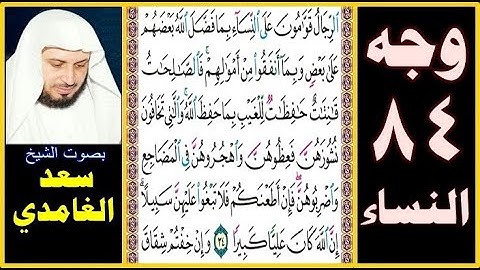 وجه
٨٤
النساء
ٱلرِّجَالُ قَوَّٰمُونَ عَلَى ٱلنِّسَآءِ بِمَا فَضَّلَ ٱللَّهُ بَعْضَهُمْ
عَلَىٰ بَعْضٍ وَبِمَآ أَنفَقُوا۟ مِنْ أَمْوَٰلِهِمْ ۚ فَٱلصَّٰلِحَٰتُ
قَٰنِتَٰتٌ حَٰفِظَٰتٌ لِّلْغَيْبِ بِمَا حَفِظَ ٱللَّهُ ۚ وَٱلَّٰتِى تَخَافُونَ
نُشُوزَهُنَّ فَعِظُوهُنَّ وَٱهْجُرُوهُنَّ فِى ٱلْمَضَاجِعِ
وَٱضْرِبُوهُنَّ ۖ فَإِنْ أَطَعْنَكُمْ فَلَا تَبْغُوا۟ عَلَيْهِنَّ سَبِيلًا ۗ
إِنَّ ٱللَّهَ كَانَ عَلِيًّا كَبِيرًا ٣٤ وَإِنْ خِفْتُمْ شِقَاقَ
بصوت الشيخ
سعد
الغامدي